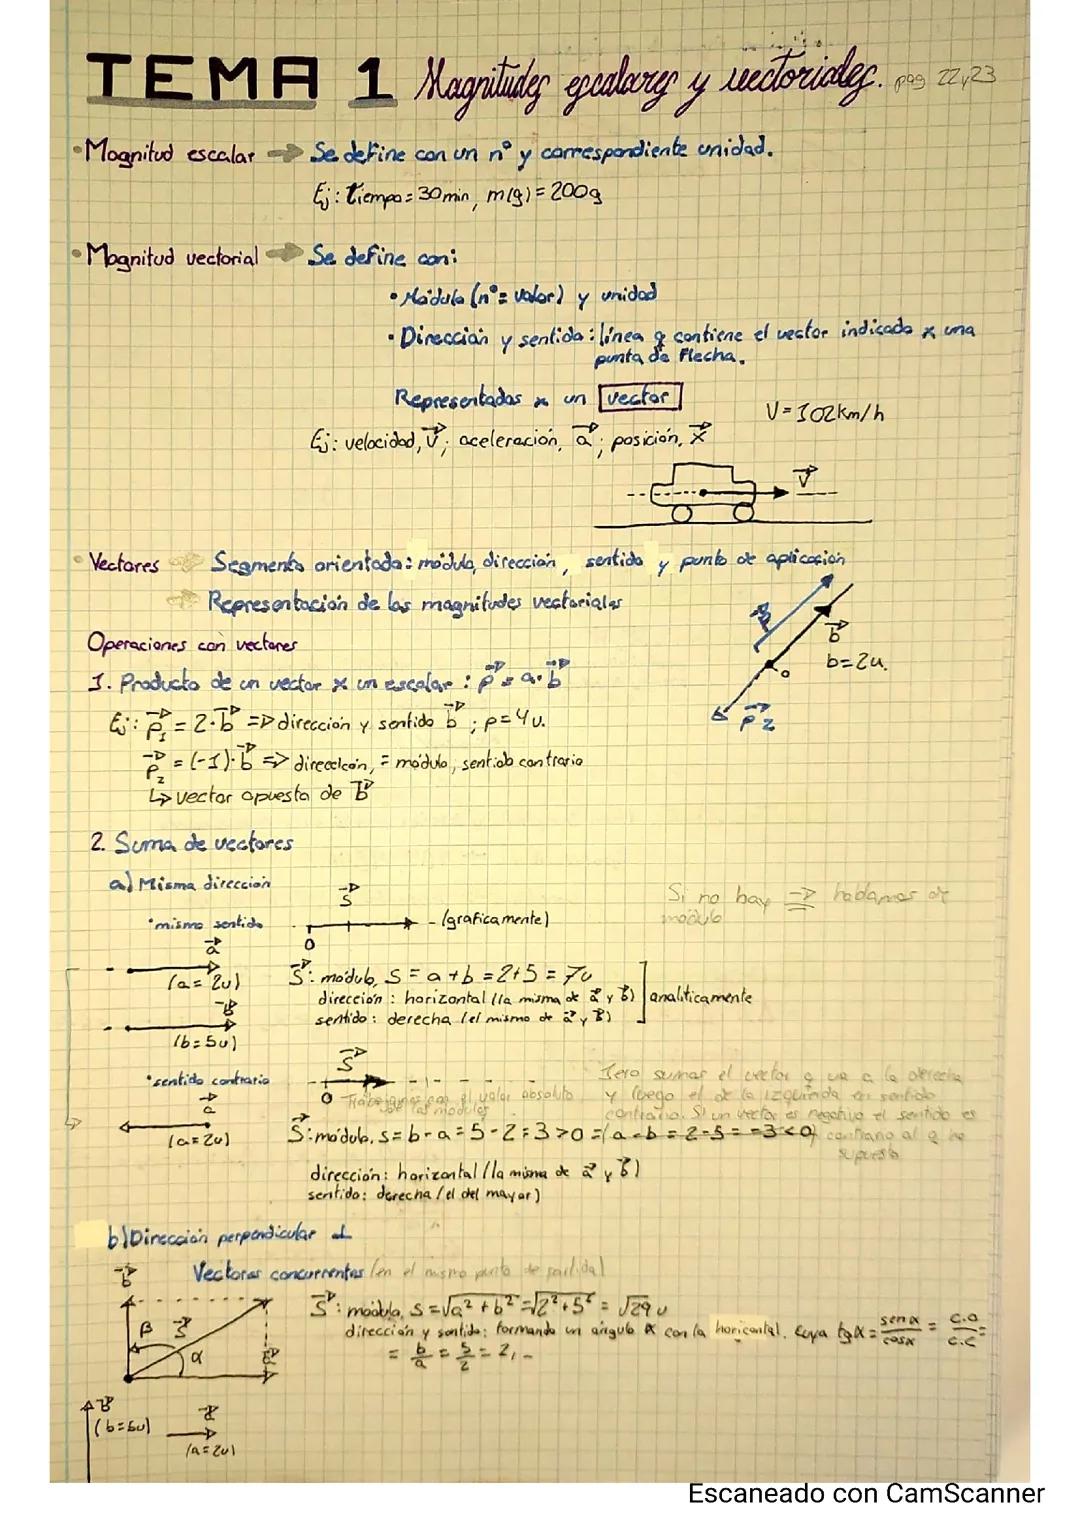 TEMA 1 Magnitudes escalares y vectoriales. pag 22 y 23
• Magnitud escalar → Se define con un nº y correspondiente unidad.
Ej: tiempo = 30 min, m(g) = 200g
• Magnitud vectorial → Se define con:
• Módulo (nº = valor) y unidad
• Dirección y sentido: línea q contiene el vector indicado x una
punta de flecha.
Representadas x un vector
V = 102 km/h
Ej: velocidad, v⃗; aceleración, a⃗; posición, x⃗
v⃗
• Vectores → Segmento orientado: módulo, dirección, sentido y punto de aplicación
→ Representación de las magnitudes vectoriales
Operaciones con vectores
b⃗
b = 2u.
o
1. Producto de un vector x un escalar: p⃗ = a · b⃗
p⃗₂
Ej: p⃗₁ = 2 · b⃗ => dirección y sentido b⃗; p = 4u.
p⃗₂ = (-1) · b⃗ => direcelcón, = módulo, sentido contrario
↳ vector opuesto de b⃗
2. Suma de vectores
a) Misma dirección
s⃗
Si no hay → hablamos de
módulo
• mismo sentido
(graficamente)
0
a⃗
(a = 2u)
s⃗: módulo, s = a + b = 2 + 5 = 7u
dirección: horizontal (la misma de a⃗ y b⃗)
sentido: derecha (el mismo de a⃗ y b⃗)
analíticamente
b⃗
(b = 5u)
s⃗
• sentido contrario
0
Trabajamos con el valor absoluto
de los módulos
sumar el vector q va a la derecha
y luego el de la izquierda en sentido
contrario. Si un vector es negativo el sentido es
contrario al q he
supuesto
a⃗
(a = 2u)
s⃗: módulo, s = b - a = 5 - 2 = 3 > 0 = (a - b = 2 - 5 = -3 < 0)
dirección: horizontal (la misma de a⃗ y b⃗)
sentido: derecha (el del mayor)
b) Dirección perpendicular ⊥
Vectores concurrentes (en el mismo punto de partida)
b⃗
β
s⃗
α
s⃗: módulo, s = √a² + b² = √2² + 5² = √29 u
dirección y sentido: formando un ángulo α con la horizontal, cuya tg α = sen α / cos α = C.O / C.C =
= b/a = 5/2 = 2, -
b⃗
(b = 5u)
a⃗
(a = 2u)
Escaneado con CamScanner